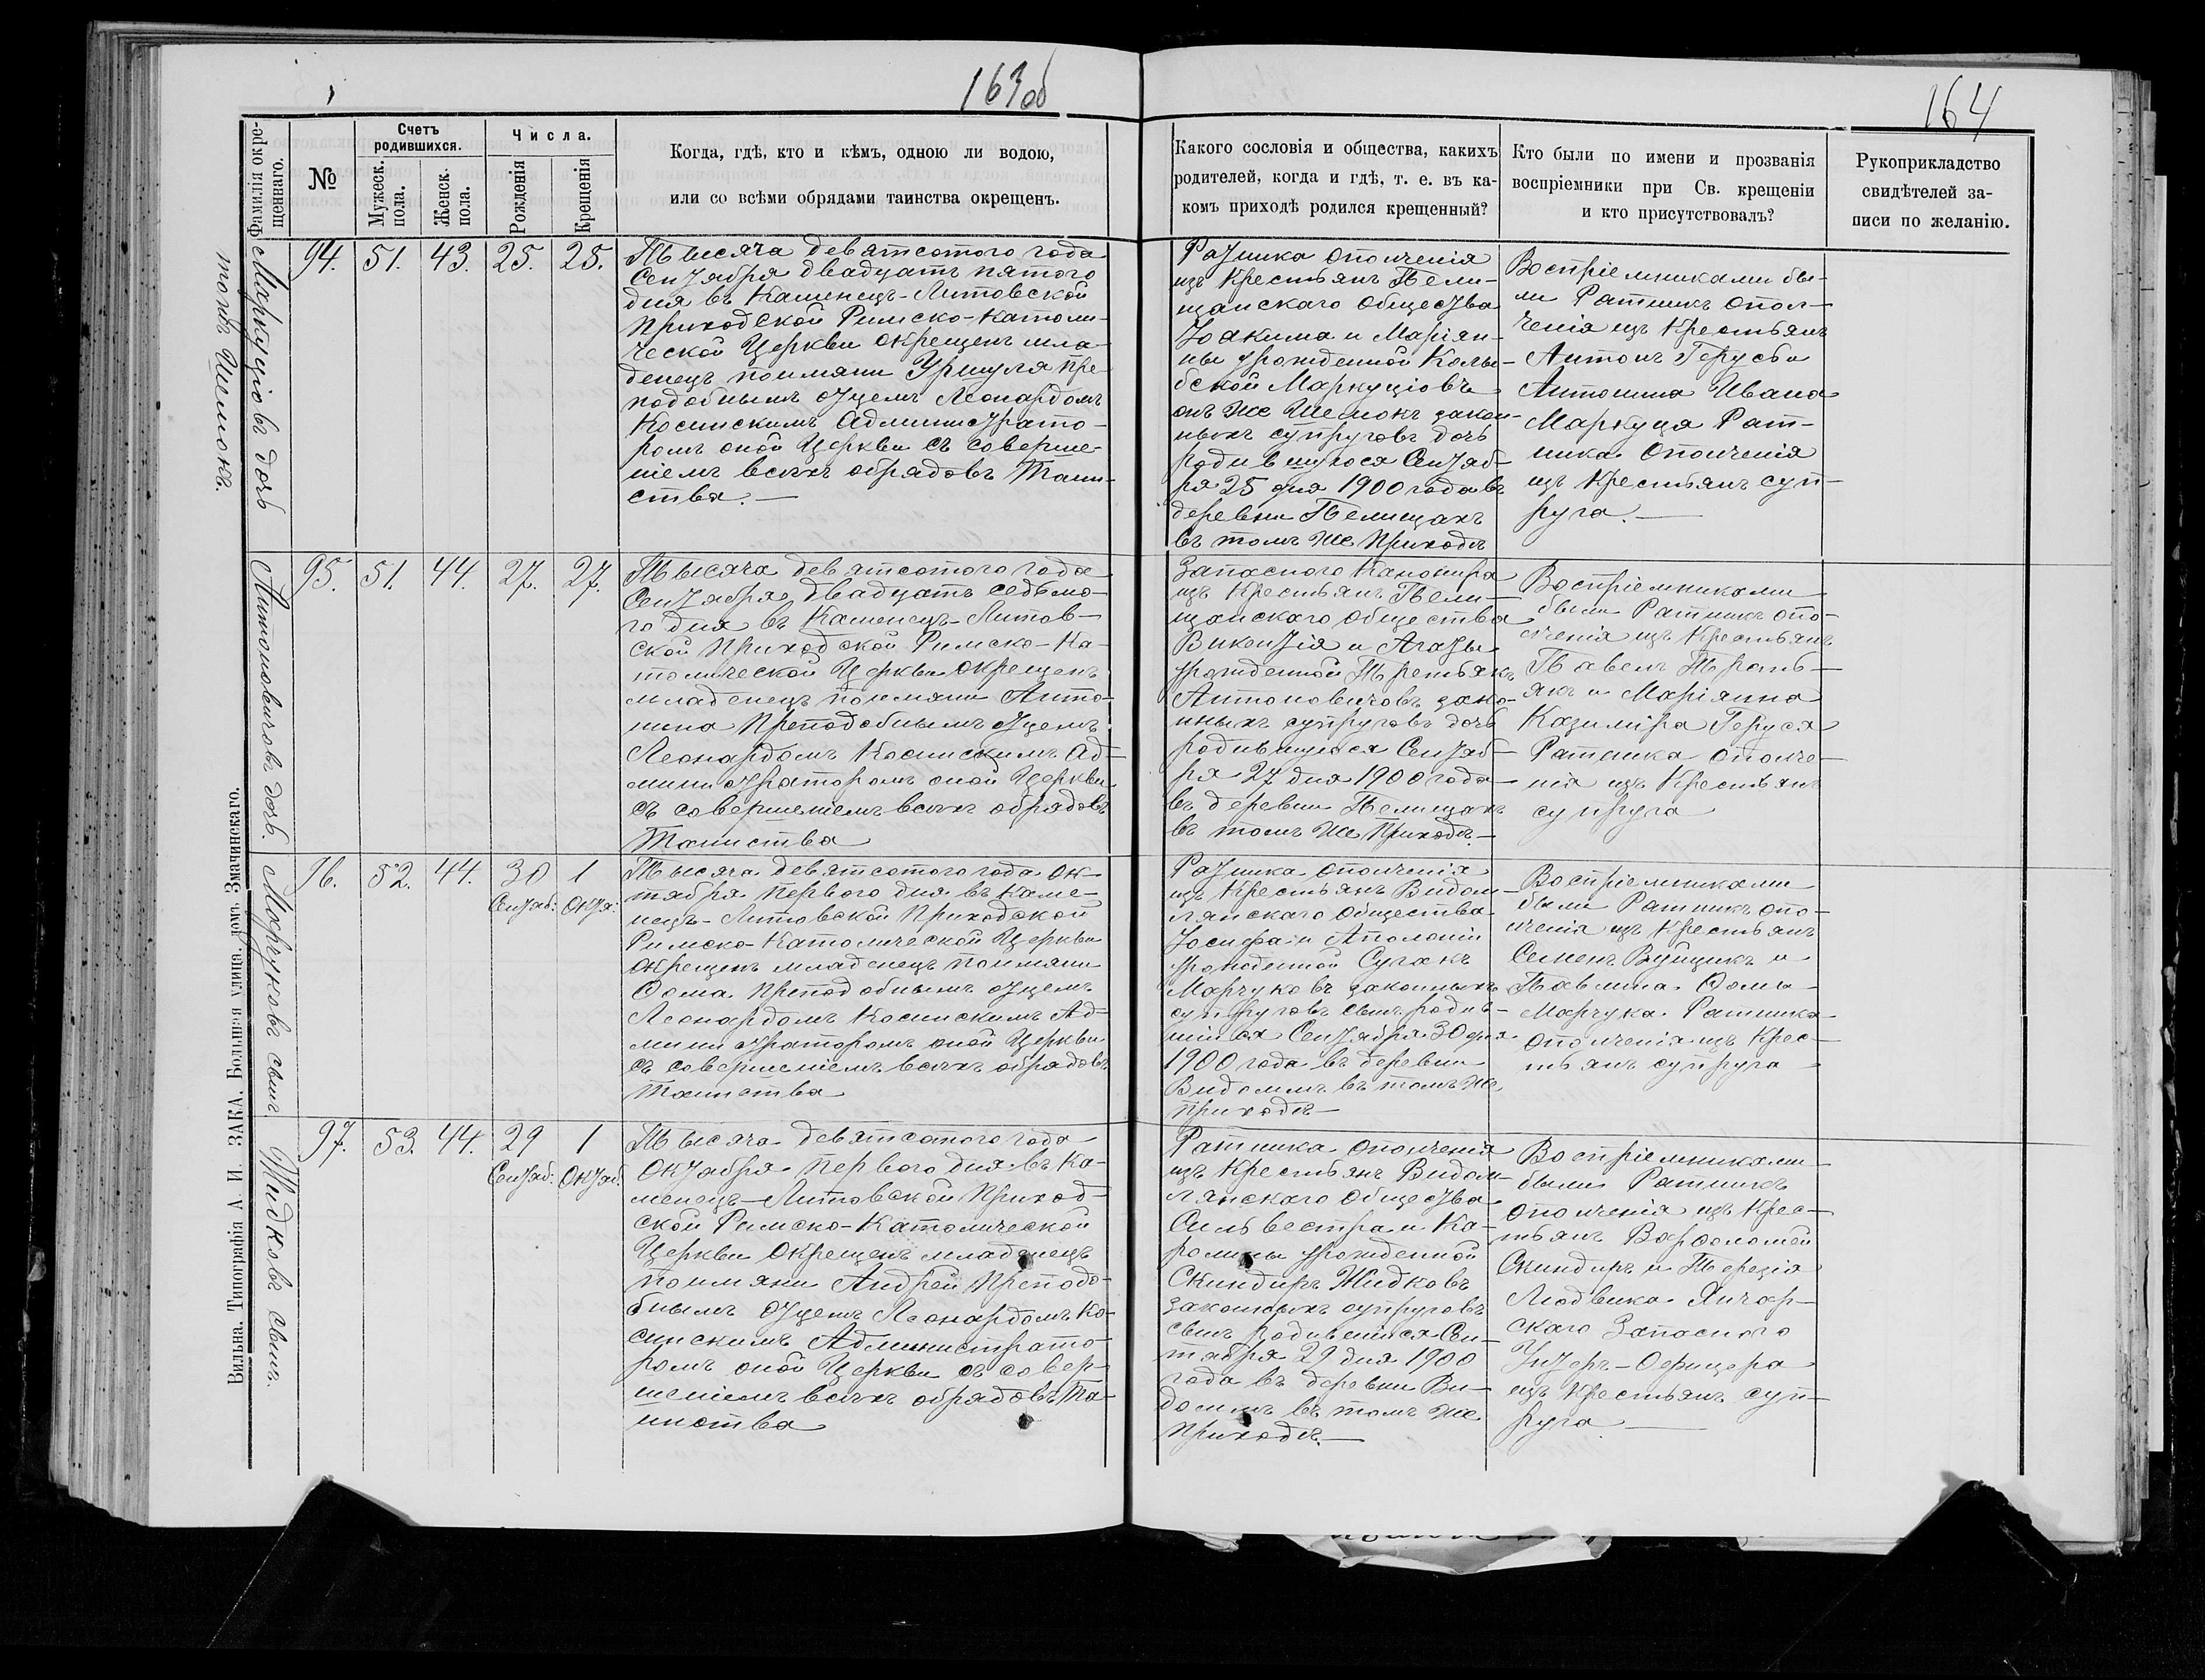 163об
164
Фамилія окре-
щеннаго.
№
Счетъ
родившихся.
Мужеск.
пола.
Женск.
пола.
Числа.
Рожденія
Крещенія
Когда, гдѣ, кто и кѣмъ, одною ли водою,
или со всѣми обрядами таинства окрещенъ.
Какого сословія и общества, какихъ
родителей, когда и гдѣ, т. е. въ ка-
комъ приходѣ родился крещенный?
Кто были по имени и прозванія
воспріемники при Св. крещеніи
и кто присутствовалъ?
Рукоприкладство
свидѣтелей за-
писи по желанію.
Маркуціовъ дочь
тожъ Шемокъ.
94. 51. 43. 25. 25.
Тысяча девятсотого года
Сентября двадцать пятого
дня въ Каменецъ-Литовской
Приходской Римско-Католи-
ческой Церкви окрещенъ мла-
денецъ поимяни Уршуля Пре-
подобнымъ Отцемъ Леонардомъ
Косинскимъ Администрато-
ромъ оной Церкви съ соверше-
ніемъ всѣхъ обрядовъ Таин-
ства.—
Ратника Ополченія
изъ Крестьянъ Пели-
щанскаго Общества
Іоакима и Маріян-
ны урожденной Колы-
бской Маркуціовъ
онъ же Шемокъ закон-
ныхъ супруговъ дочь
родившуюся Сентяб-
ря 25 дня 1900 года въ
деревни Пелищахъ
въ томъ же Приходѣ
Воспріемниками бы-
ли Ратникъ Опол-
ченія изъ Крестьянъ
Антонъ Герусь и
Антонина Ивана
Маркуця Рат-
ника Ополченія
изъ Крестьянъ суп-
руга.—
Антоновичовъ дочь.
95. 51. 44. 27. 27.
Тысяча девятсотого года
Сентября двадцать седьмо-
го дня въ Каменецъ-Литов-
ской Приходской Римско-Ка-
толической Церкви окрещенъ
младенецъ поимяни Анто-
нина Преподобнымъ Отцемъ
Леонардомъ Косинскимъ Ад-
министраторомъ оной Церкви
съ совершеніемъ всѣхъ обрядовъ
Таинства
Запасного Канонира
изъ Крестьянъ Пели-
щанского Общества
Викентія и Агаты
урожденной Третьякъ
Антоновичовъ зако-
нныхъ супруговъ дочь
родившуюся Сентяб-
ря 27 дня 1900 года
въ деревни Пелищахъ
въ томъ же Приходѣ.—
Воспріемниками
были Ратникъ опо-
лченія изъ Крестьянъ
Павелъ Треть-
якъ и Маріянна
Казиміра Геруся
Ратника ополче-
нія изъ Крестьянъ
супруга
Марчуковъ сынъ.
96. 52. 44. 30 1
Сентяб: Октя:
Тысяча девятсотого года Ок-
тября Первого дня въ Каме-
нецъ-Литовской Приходской
Римско-Католической Церкви
окрещенъ младенецъ поимяни
Ѳома Преподобнымъ Отцемъ
Леонардомъ Косинскимъ Ад-
министраторомъ оной Церкви
съ совершеніемъ всѣхъ обрядовъ
Таинства
Ратника Ополченія
изъ Крестьянъ Видом-
лянскаго Общества
Іосифа и Аполоніи
урожденной Сугакъ
Марчуковъ законныхъ
супруговъ сынъ родив-
шійся Сентября 30 дня
1900 года въ деревни
Видомлѣ въ томъ же
приходѣ—
Воспріемниками
были Ратникъ опо-
лченія изъ Крестьянъ
Семенъ Вуйцикъ и
Павлина Ѳомы
Марчука Ратника
Ополченія изъ Крес-
тьянъ супруга
Жидковъ сынъ.
97. 53. 44. 29 1
Сентяб: Октяб:
Тысяча девятсотого года
Октября Первого дня въ Ка-
менецъ-Литовской Приход-
ской Римско-Католической
Церкви Окрещенъ младенецъ
поимяни Андрей Преподо-
бнымъ Отцемъ Леонардомъ Ко-
синскимъ Администрато-
ромъ оной Церкви съ совер-
шеніемъ всѣхъ обрядовъ Та-
инства
Ратника Ополченія
изъ Крестьянъ Видом-
лянскаго Общества
Сильвестра и Ка-
ролины урожденной
Скиндиръ Жидковъ
законныхъ супруговъ
сынъ родившійся Сен-
тября 29 дня 1900
года въ деревни Ви-
домлѣ въ томъ же
Приходѣ.—
Воспріемниками
были Ратникъ
Ополченія изъ Крес-
тьянъ Варѳоломѣй
Скиндиръ и Терезія
Людвика Янчар-
скаго Запасного
Унтеръ-Офицера
изъ Крестьянъ суп-
руга.—
Вильна. Типографія А. И. ЗАКА, Большая улица, домъ Змачинскаго.